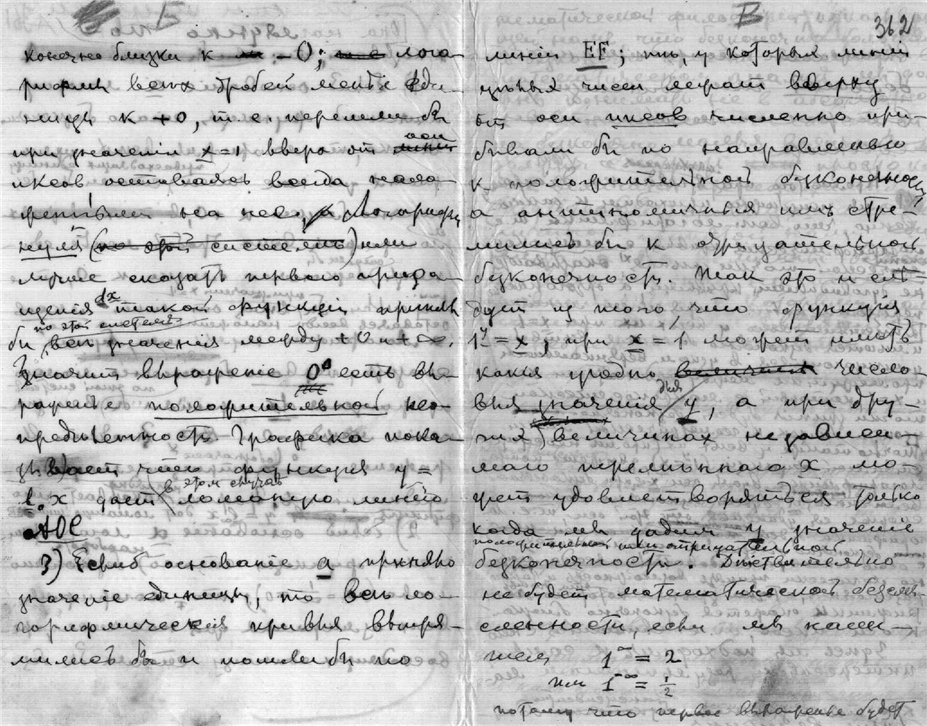 Б
конечно близки к – 0; лога-
рифмы всех дробей меньше еди-
ницы к +0, т. е. перешли бы
при значении x=1 вверх от оси
иксов оставаясь всегда нало-
женными на нее. Логарифм
нуля (по этой системе) или
лучше сказать первого прира-
щения dx такой функции приняли
по этой системе
бы все значения между +0 и +∞.
Значит выражение 0⁰ есть вы-
ражение положительной нео-
пределенности. Графика пока-
зывает что функция y =
в этом случае
l₀ x дает ломаную линию
АОС
3) Если б основание a приняло
значение единицы, то все ло-
гарифмические кривые выпря-
мились бы и пошли бы по
В
362
линии EF; те, у которых линии
целых чисел играют вверху
от оси иксов численно при-
бывали бы по направлению
к положительной бесконечности
а антиномичные им стре-
мились бы к отрицательной
безконечности. Так это и сле-
дует из того, что функция
1ʸ = x; при x = 1 может иметь
какия угодно величины число-
выя значения для y, а при дру-
гих величинах независи-
маго переменнаго x мо-
жет удовлетворяться только
когда мы дадим y значение
положительной или отрицательной
безконечности. Действительно
не будет математической безсмы-
сленности, если мы напи-
шем 1^∞ = 2
или 1^-∞ = ½
потому что первое выражение будет